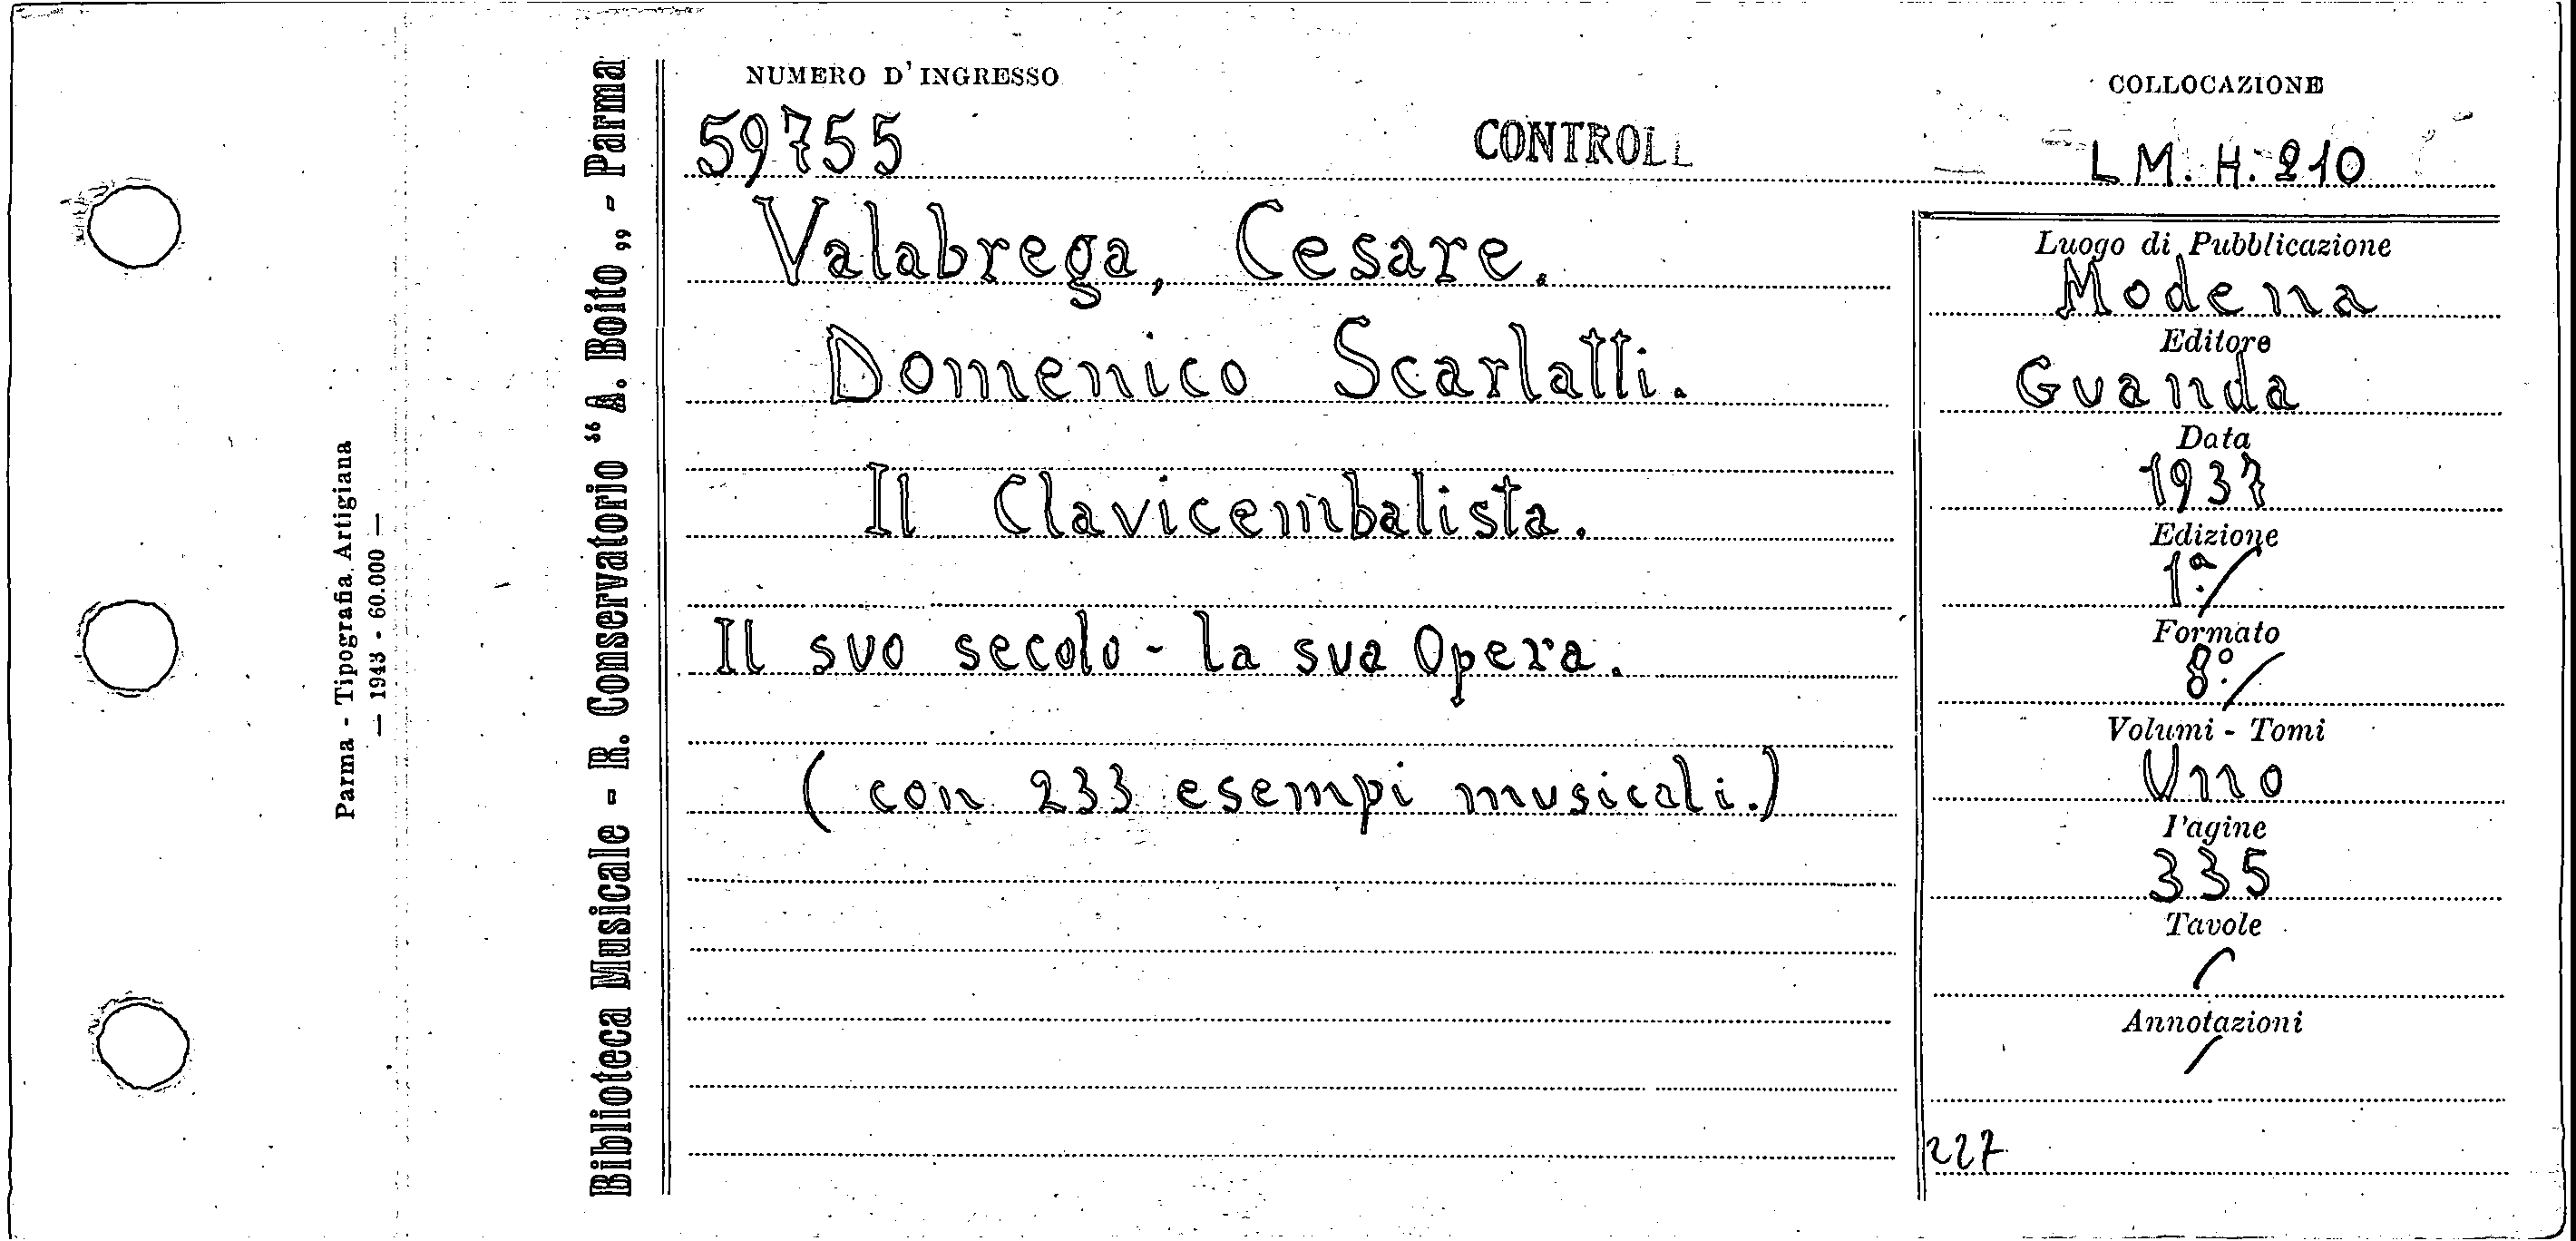 Parma - Tipografia Artigiana
— 1943 - 60.000 —
Biblioteca Musicale - R. Conservatorio “A. Boito„ - Parma
NUMERO D'INGRESSO
59755
CONTROLL
COLLOCAZIONE
L M. H. 210
Valabrega, Cesare.
Domenico Scarlatti.
Il Clavicembalista.
Il suo secolo - la sua Opera.
(con 233 esempi musicali.)
Luogo di Pubblicazione
Modena
Editore
Guanda
Data
1937
Edizione
1ª
Formato
8º
Volumi - Tomi
Uno
Pagine
335
Tavole
Annotazioni
227